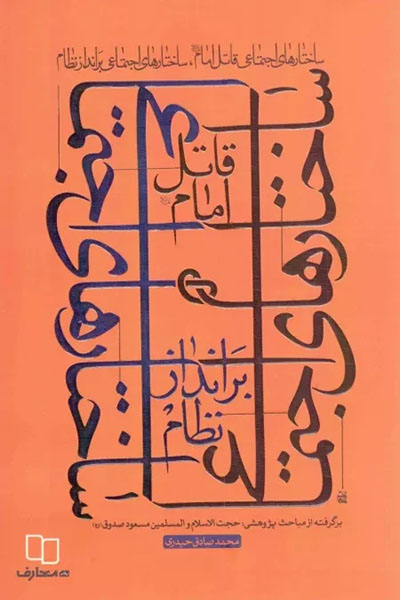 ساختارهای اجتماعی قاتل امام، ساختارهای اجتماعی برانداز نظام
ساختارهای اجتماعی
قاتل
امام
ساختارهای اجتماعی
برانداز
نظام
برگرفته از مباحث پژوهشی: حجت الاسلام و المسلمین مسعود صدوق (ره)
محمدصادق حیدری
معارف